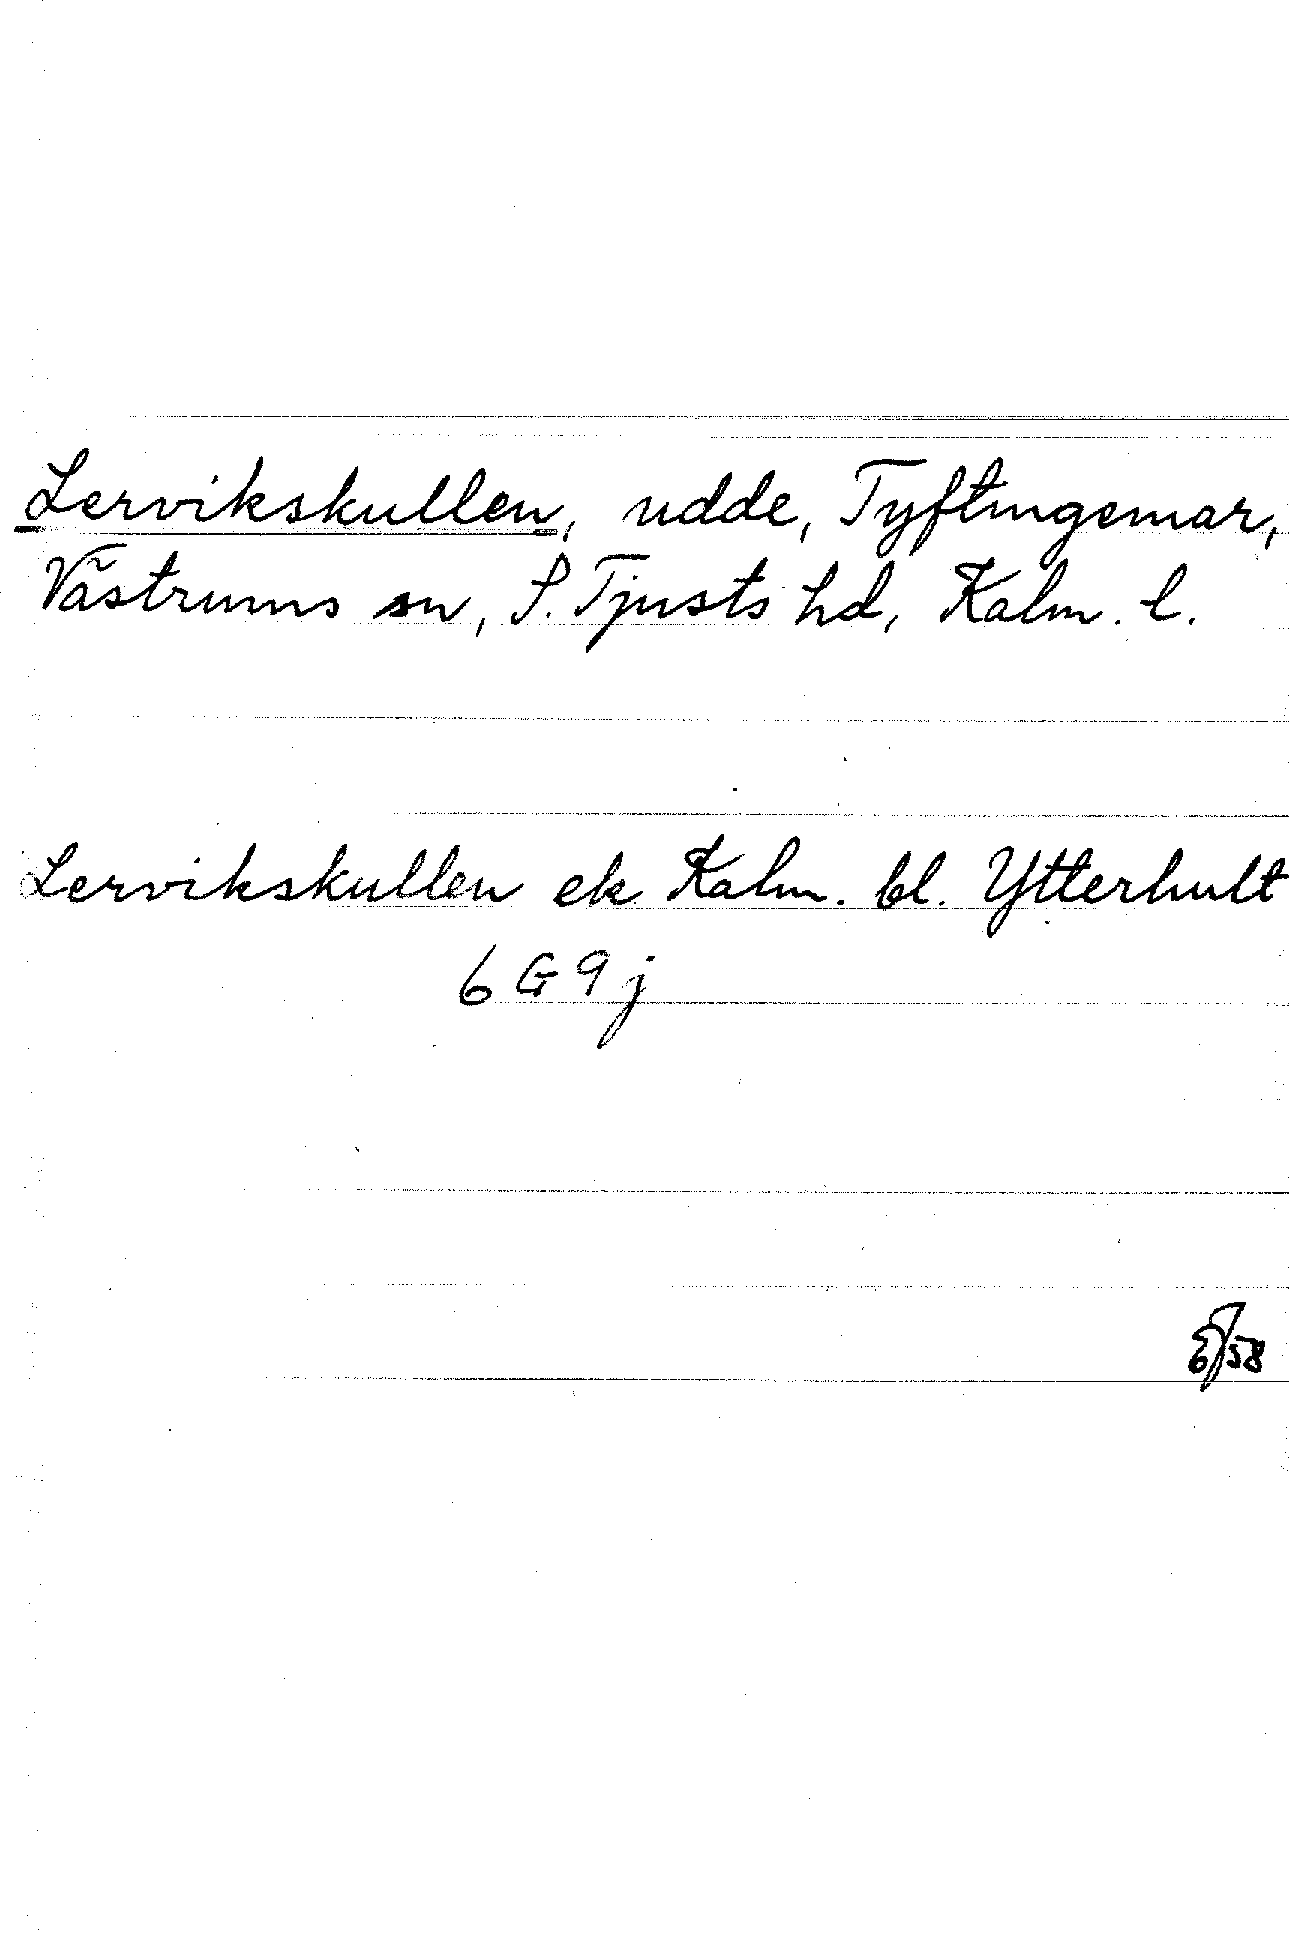 Lervikskullen, udde, Tyftingemar,
Västrums sn, S. Tjusts hd, Kalm. l.
Lervikskullen ek Kalm. bl. Ytterhult
6 G 9 j